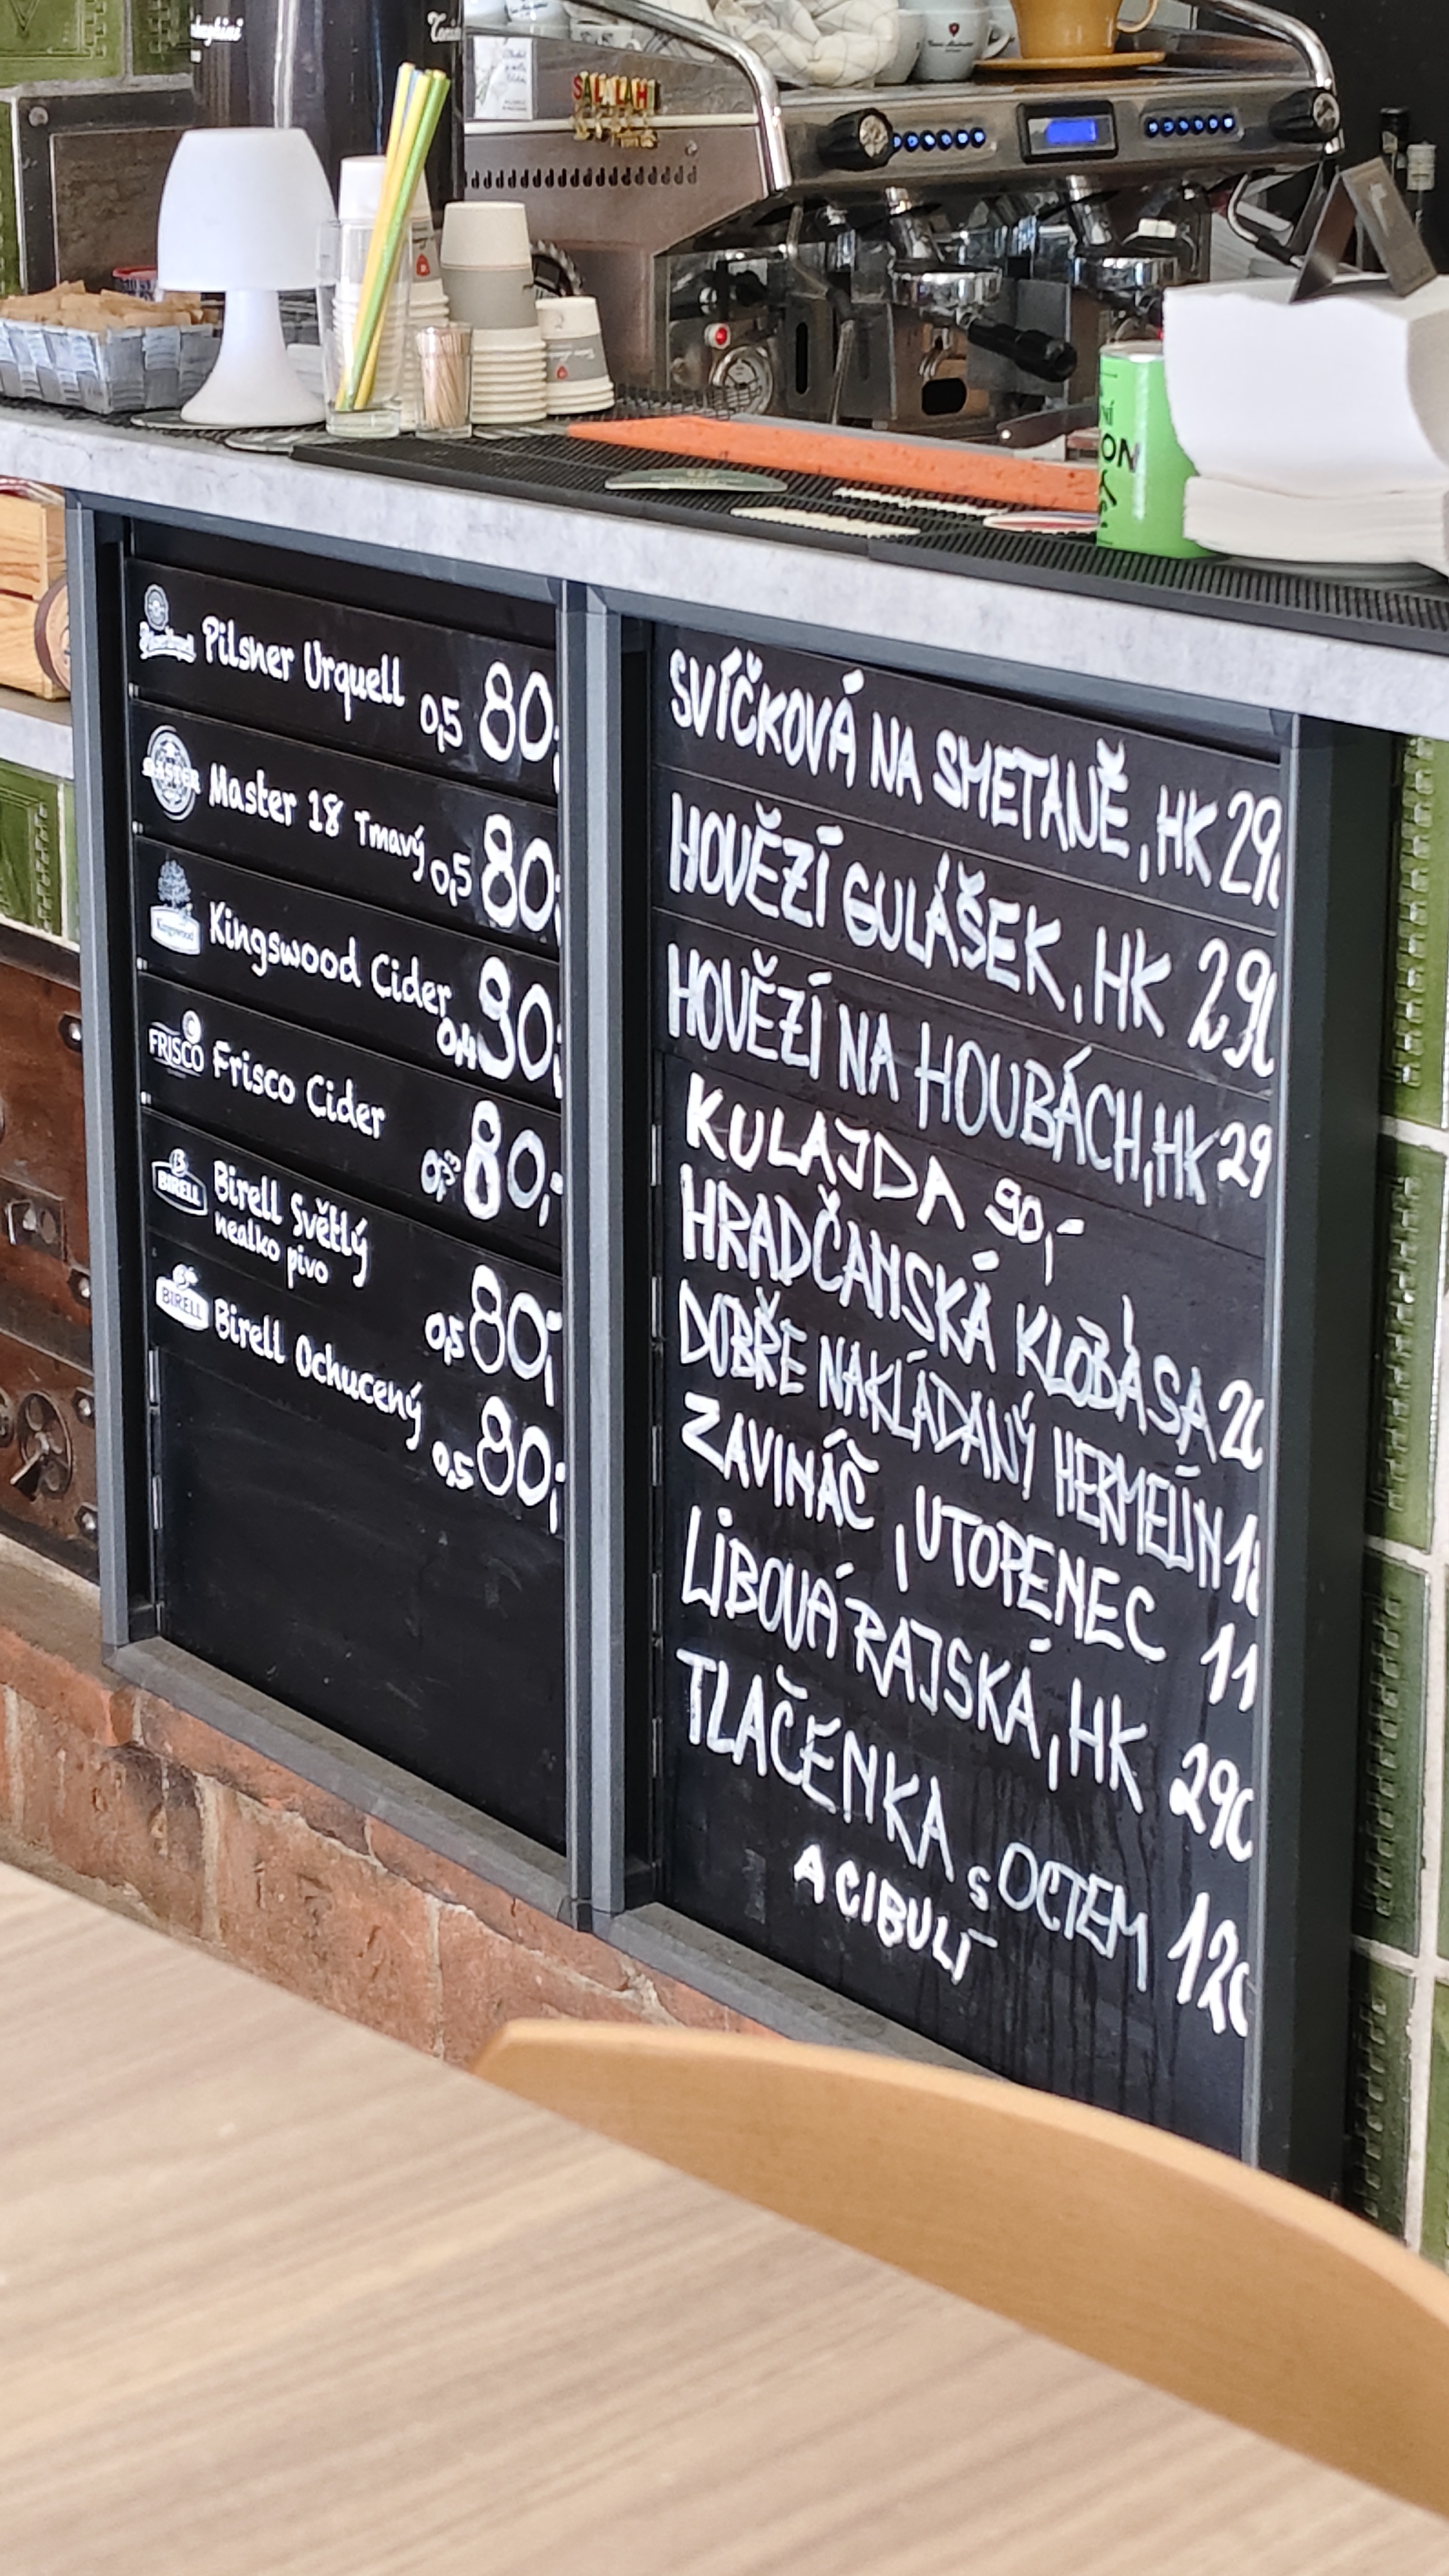 SALALAH
Pilsner Urquell 0,5 80,-
MASTER Master 18 Tmavý 0,5 80,-
Kingswood Kingswood Cider 0,4 90,-
FRISCO Frisco Cider 0,33 80,-
BIRELL Birell Světlý
nealko pivo 0,5 80,-
BIRELL Birell Ochucený 0,5 80,-
SVÍČKOVÁ NA SMETANĚ, HK 290
HOVĚZÍ GULÁŠEK, HK 290
HOVĚZÍ NA HOUBÁCH, HK 29
KULAJDA 90,-
HRADČANSKÁ KLOBÁSA 20
DOBŘE NAKLÁDANÝ HERMELÍN 1
ZAVINÁČ, UTOPENEC 11
LIBOVÁ RAJSKÁ, HK 290
TLAČENKA S OCTEM 120
A CIBULÍ